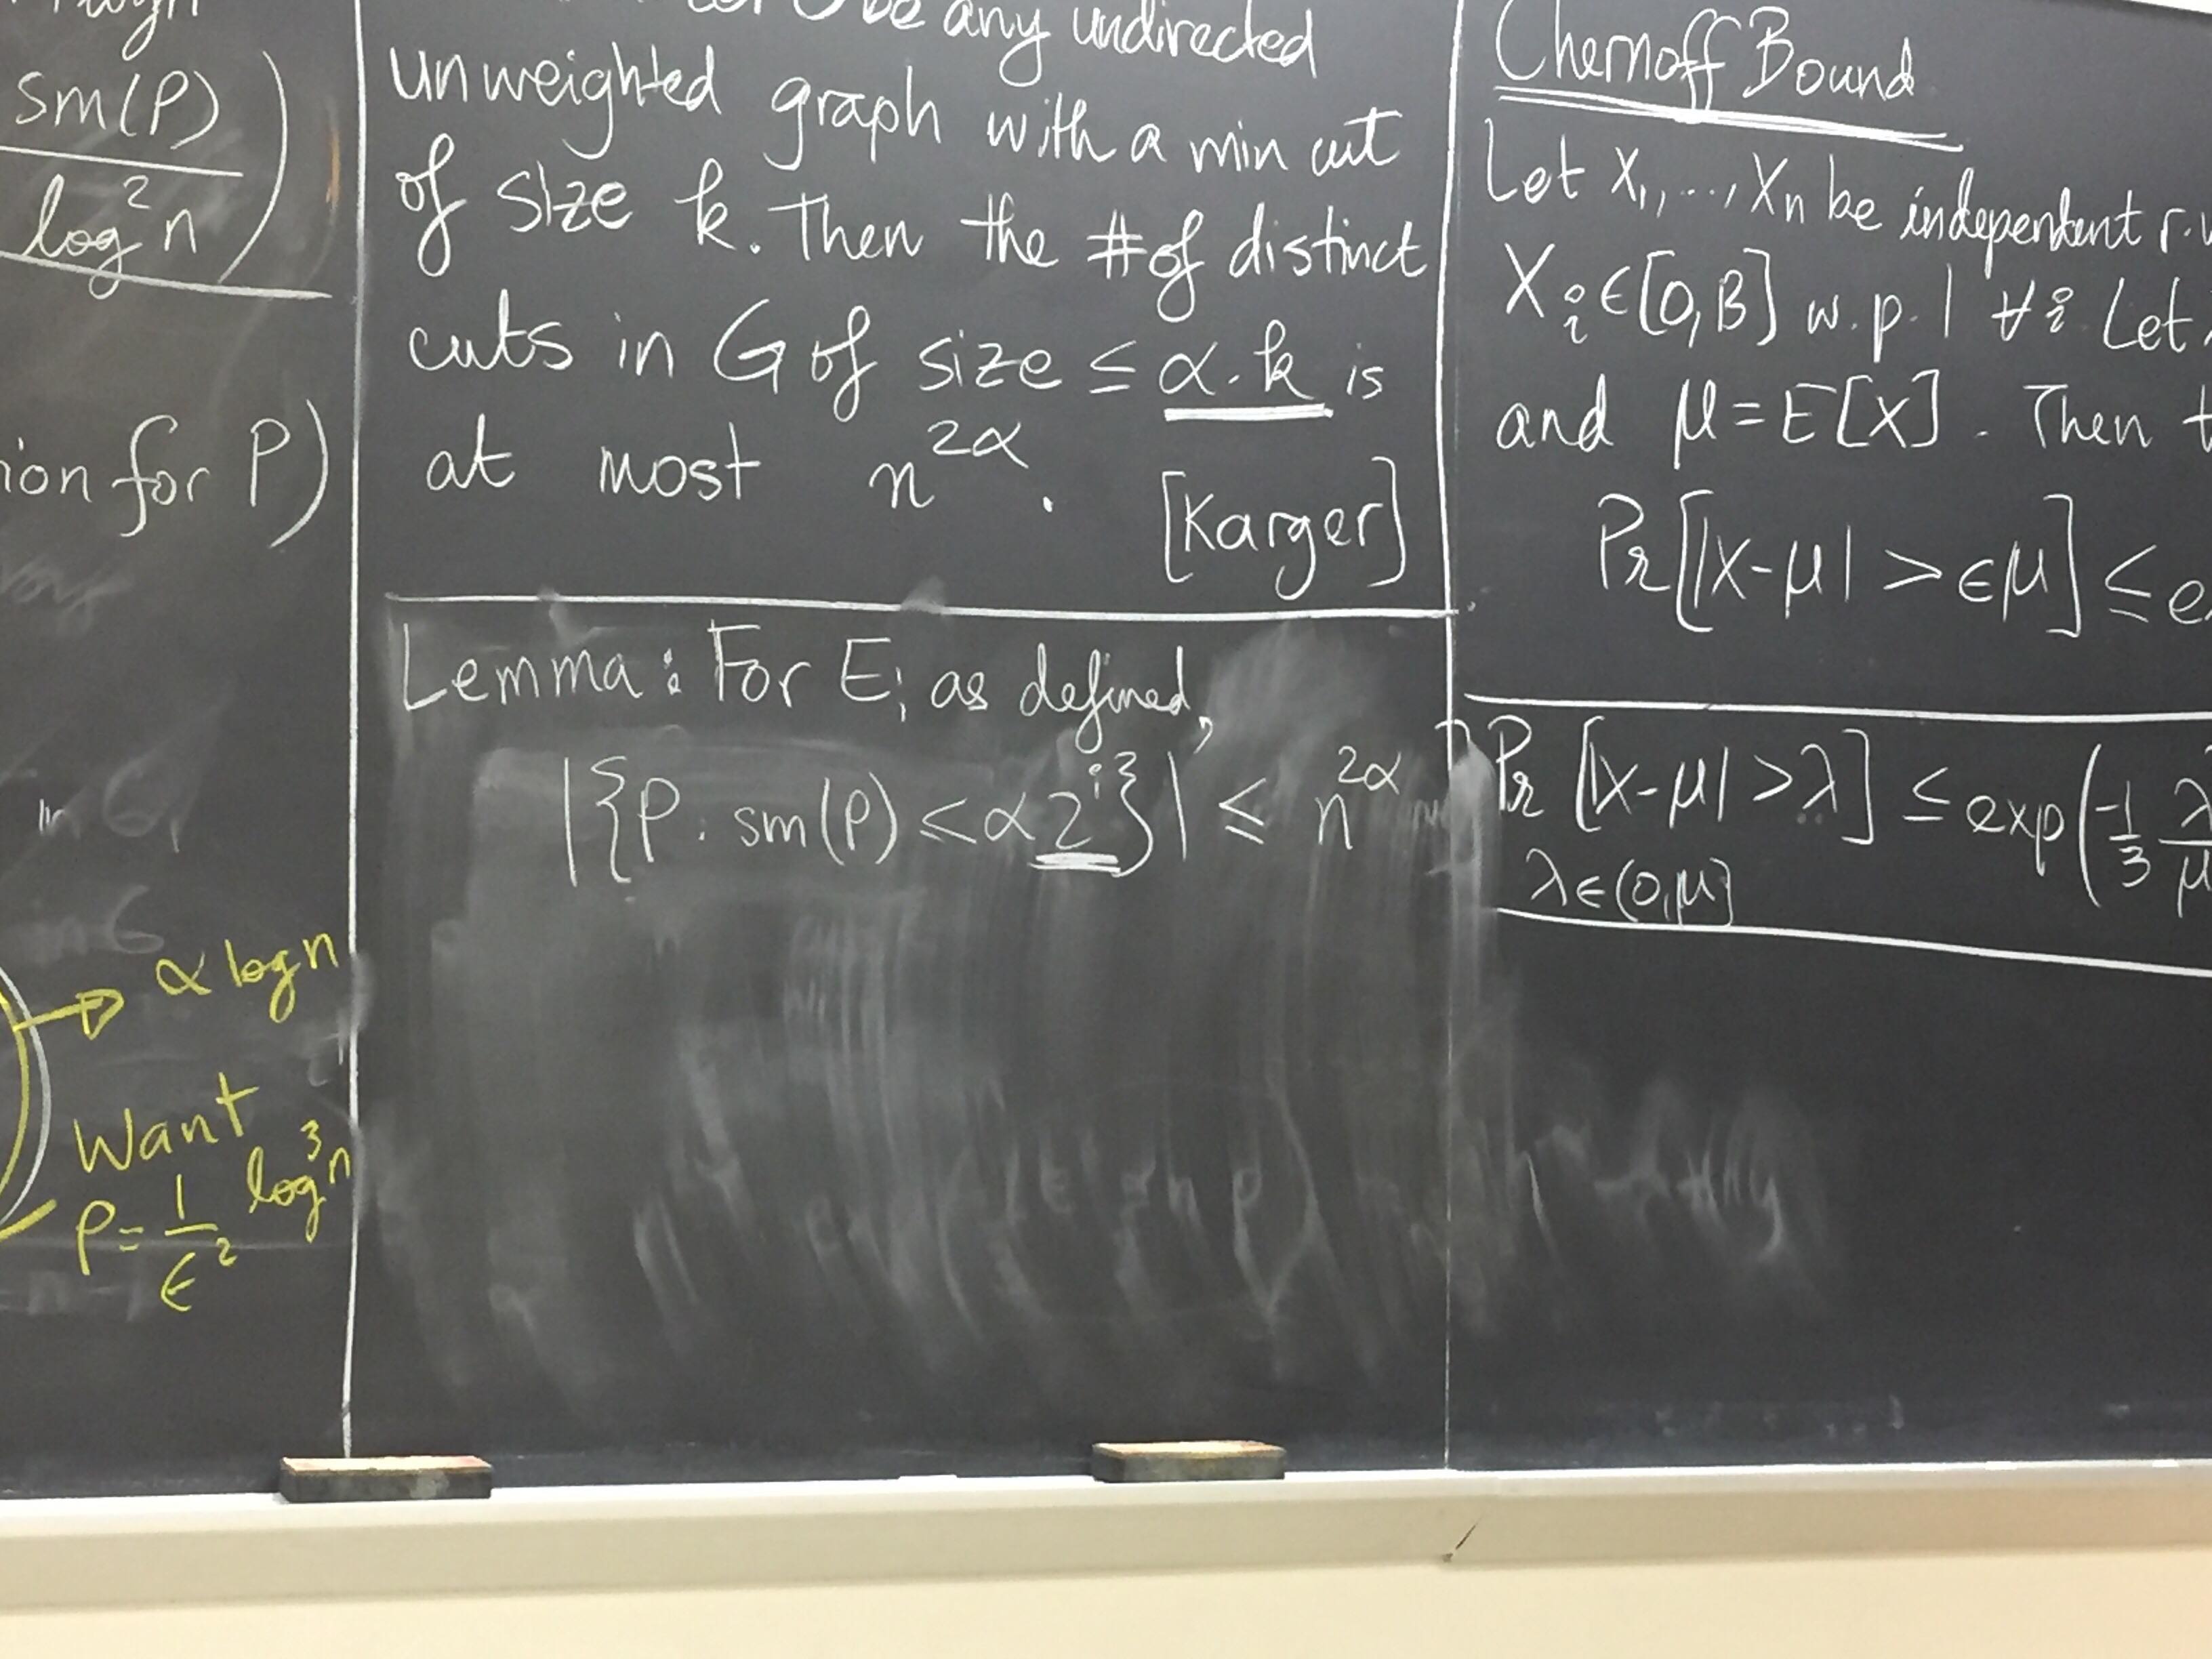 sm(P)
log²n
ion for P)
α log n
Want
ρ = 1/ϵ² log³n
be any undirected
unweighted graph with a min cut
of size k. Then the # of distinct
cuts in G of size ≤ α·k is
at most n^{2α}.
[Karger]
Lemma: For E_i as defined,
|{P: sm(P) ≤ α2^i}| ≤ n^{2α}
Chernoff Bound
Let X₁,..., Xn be independent r.
X_i ∈ [0,B] w.p. 1 ∀i Let
and μ = E[X]. Then
Pr[|X-μ| > ϵμ] ≤ e
Pr[|X-μ| > λ] ≤ exp(-1/3 λ/μ
λ ∈ (0,μ]